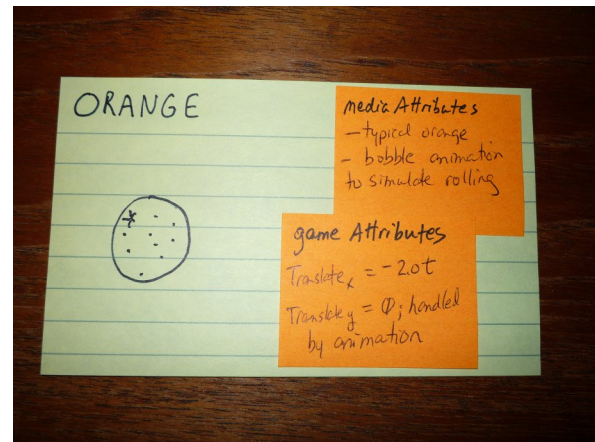 ORANGE
media Attributes
- typical orange
- bobble animation
to simulate rolling
game Attributes
Translate x = -2.0t
Translate y = Ø; handled
by animation